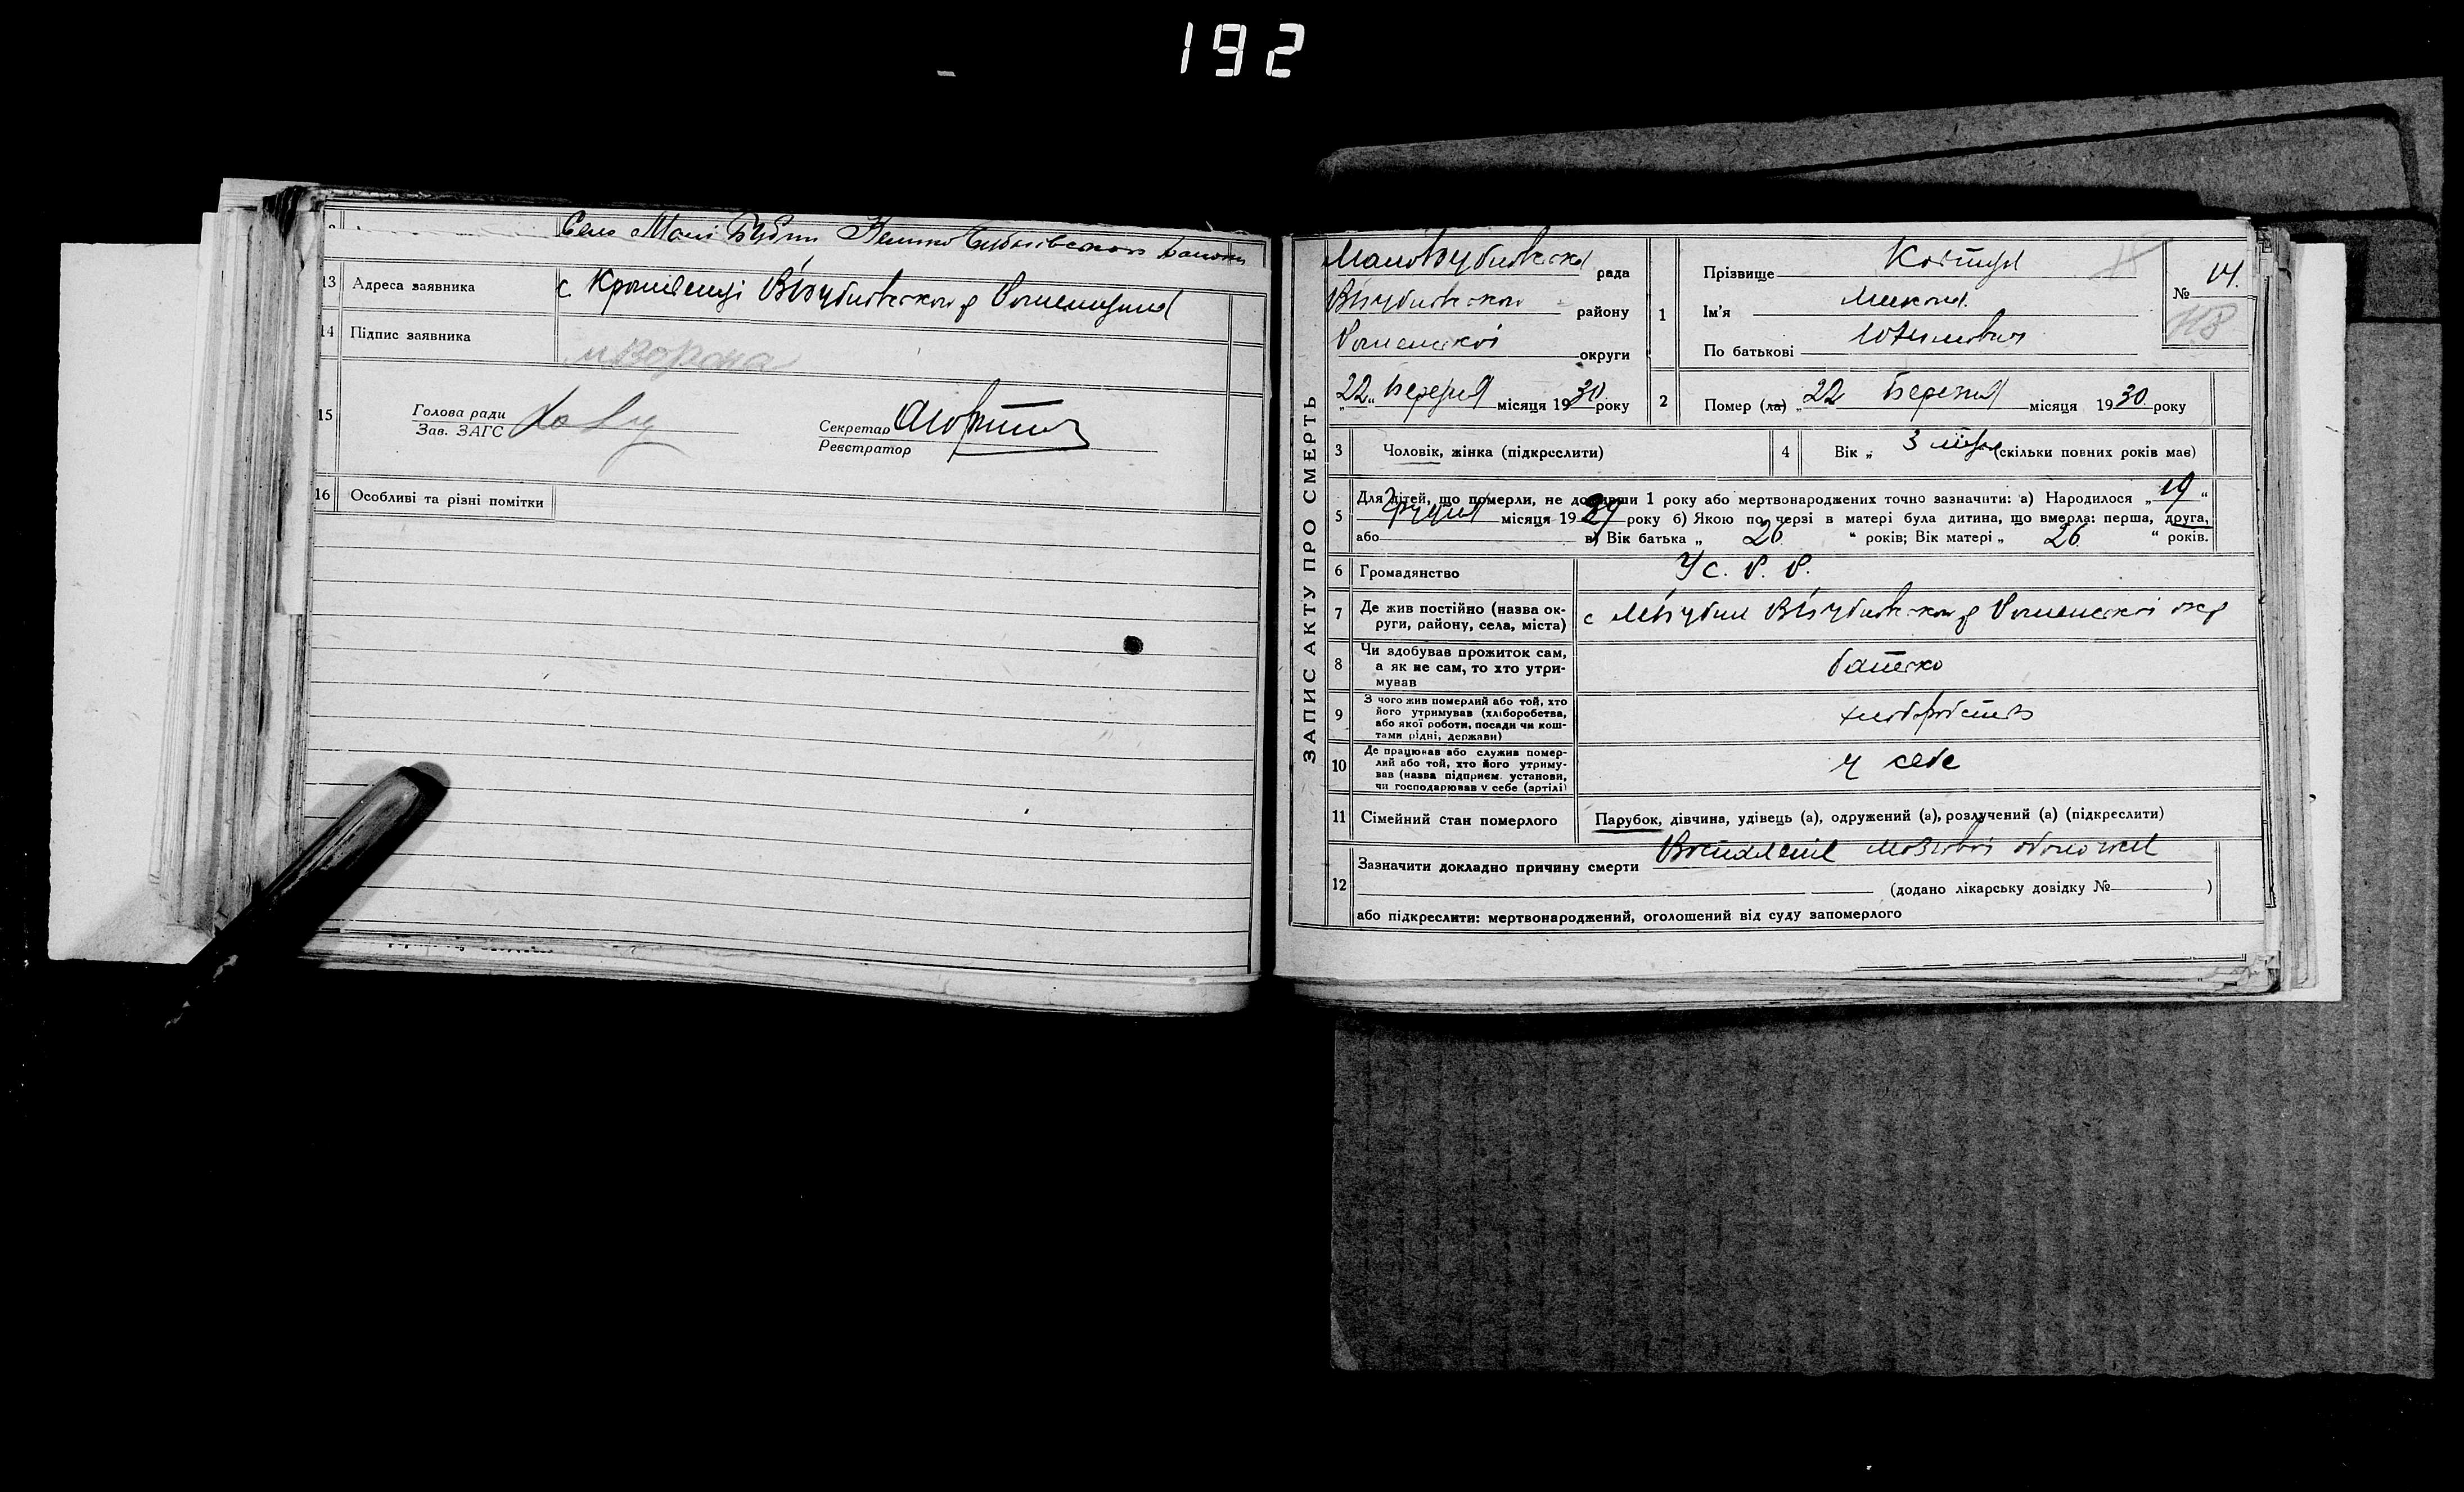 192
Село Малі Бубни
13 Адреса заявника с
14 Підпис заявника Ворона
15 Голова ради
Зав. ЗАГС
Секретар
Реєстратор
16 Особливі та різні помітки
ЗАПИС АКТУ ПРО СМЕРТЬ
Малобубнівська рада
В/бубнівського району
Роменської округи
„22" Березня місяця 1930 року
1 Прізвище
Ім'я Микола
По батькові
№ 14.
118
2 Помер (ла) „22 Березня місяця 1930 року
3 Чоловік, жінка (підкреслити)
4 Вік „ 3 місяці (скільки повних років має)
5 Для дітей, що померли, не доживши 1 року або мертвонароджених точно зазначити: а) Народилося „19"
грудня місяця 1929 року б) Якою по черзі в матері була дитина, що вмерла: перша, друга,
або в) Вік батька „ 26 " років; Вік матері „ 26 " років.
6 Громадянство У С. Р. Р.
7 Де жив постійно (назва ок-
руги, району, села, міста) с М/бубни В/бубнівського р Роменської окр
8 Чи здобував прожиток сам,
а як не сам, то хто утри-
мував батько
9 З чого жив померлий або той, хто
його утримував (хліборобства,
або якої роботи, посади чи кош-
тами рідні, держави) хлоборобство
10 Де працював або служив помер-
лий або той, хто його утриму-
вав (назва підприєм. установи,
чи господарював у себе (артілі) у себе
11 Сімейний стан померлого Парубок, дівчина, удівець (а), одружений (а), розлучений (а) (підкреслити)
12 Зазначити докладно причину смерти
(додано лікарську довідку № )
або підкреслити: мертвонароджений, оголошений від суду запомерлого